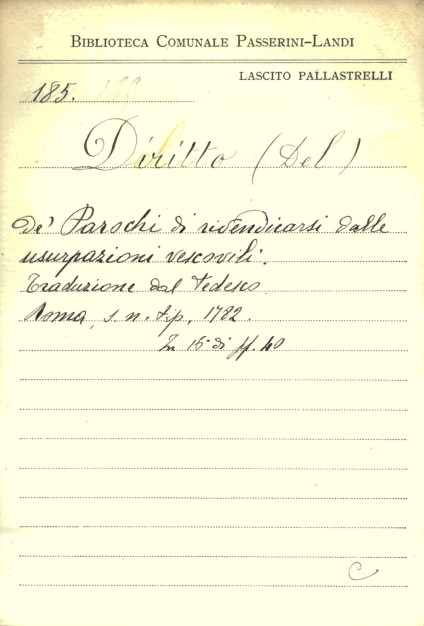 BIBLIOTECA COMUNALE PASSERINI-LANDI
LASCITO PALLASTRELLI
185. 188
Diritto (Del)
de' Parochi di rivendicarsi dalle
usurpazioni vescovili.
Traduzione dal Tedesco
Roma, s. n. tip., 1782.
In 16° di pp. 40
C